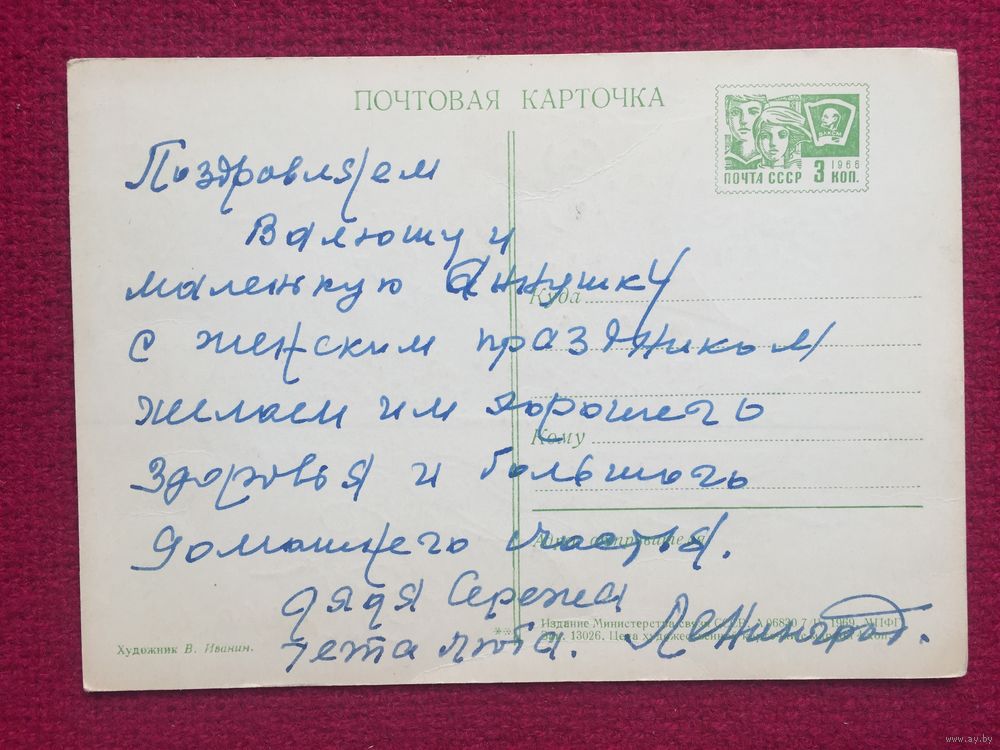 ПОЧТОВАЯ КАРТОЧКА
1966
ПОЧТА СССР 3 КОП.
ВЛКСМ
Поздравляем
Валюшу и
маленькую Аннушку
с женским праздником
желаем им хорошего
здоровья и большого
домашнего счастья.
дядя Сережа
тета Люба. Ленинград.
Куда
Кому
Адрес отправителя
Издание Министерства связи СССР.
Зак. 13026. Цена
Художник В. Иванин.
www.ay.by